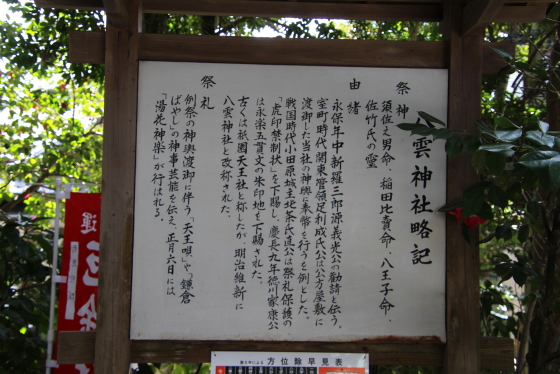 八雲神社略記
祭神
須佐之男命、稲田比売命、八王子命、
佐竹氏の霊
由緒
永保年中新羅三郎源義光公の勧請と伝う。
室町時代関東管領足利成氏公は公方屋敷に
渡御した当社の神輿に奉幣を行うを例とした。
戦国時代小田原城主北条氏直公は祭礼保護の
「虎印禁制状」を下賜し、慶長九年徳川家康公
は永楽五貫文の朱印地を下賜された。
古くは祇園天王社と称したが、明治維新に
八雲神社と改称された。
祭礼
例祭の神輿渡御に伴う、「天王唄」や「鎌倉
ばやし」の神事芸能を伝え、正月六日には
「湯花神楽」が行はれる。
運
厄除
方位除早見表